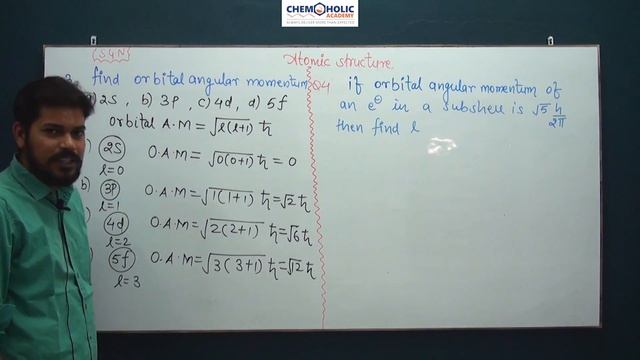 CHEMOHOLIC
ACADEMY
ALWAYS DELIVER MORE THAN EXPECTED
(SQN)
Atomic structure
find orbital angular momentum
a) 2S, b) 3P, c) 4d, d) 5f
orbital A.M = √l(l+1) ħ
2S O.A.M = √0(0+1) ħ = 0
l=0
b) 3P O.A.M = √1(1+1) ħ = √2 ħ
l=1
4d O.A.M = √2(2+1) ħ = √6 ħ
l=2
5f O.A.M = √3(3+1) ħ = √12 ħ
l=3
Q4 if orbital angular momentum of
an e⊖ in a subshell is √5 h/2π
then find l